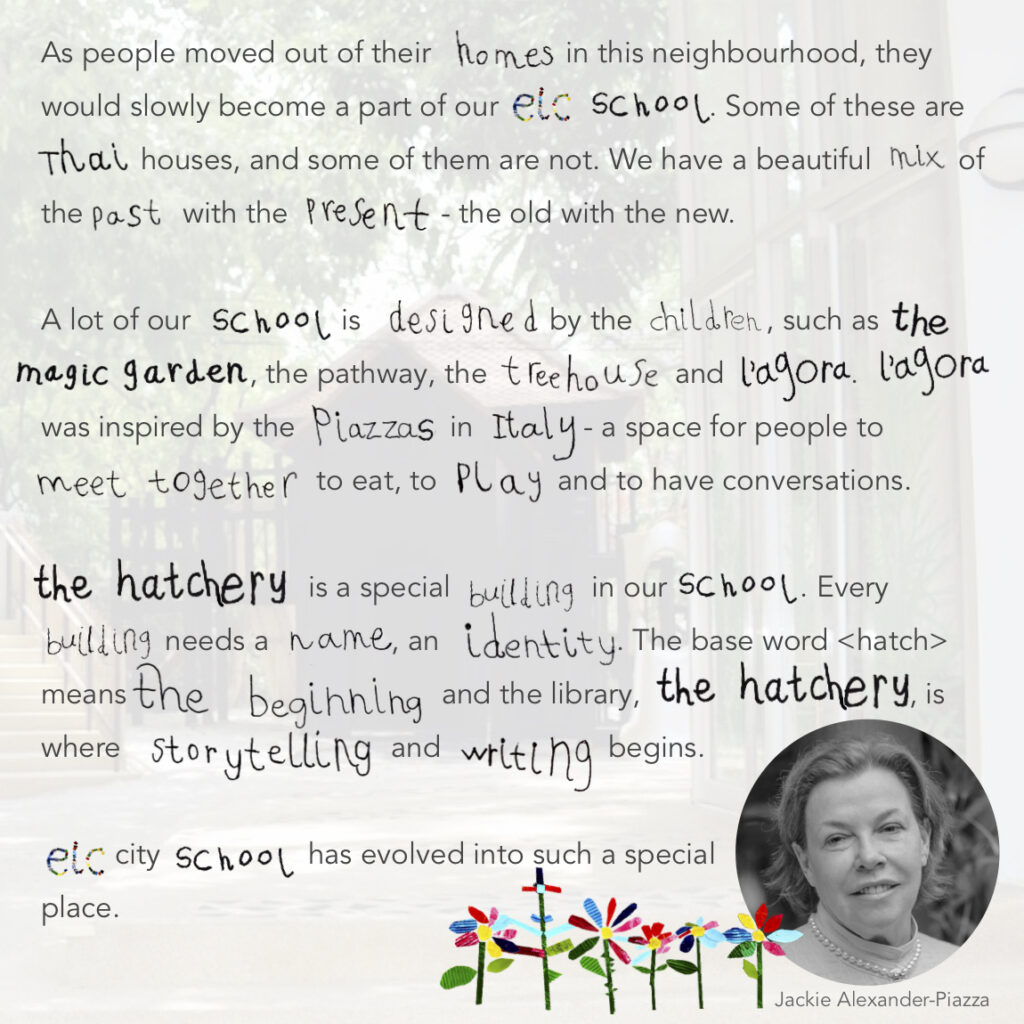 As people moved out of their homes in this neighbourhood, they
would slowly become a part of our elc school. Some of these are
Thai houses, and some of them are not. We have a beautiful mix of
the past with the present - the old with the new.
A lot of our school is designed by the children, such as the
magic garden, the pathway, the treehouse and l'agora. l'agora
was inspired by the Piazzas in Italy - a space for people to
meet together to eat, to play and to have conversations.
the hatchery is a special building in our school. Every
building needs a name, an identity. The base word <hatch>
means the beginning and the library, the hatchery, is
where storytelling and writing begins.
elc city school has evolved into such a special
place.
Jackie Alexander-Piazza